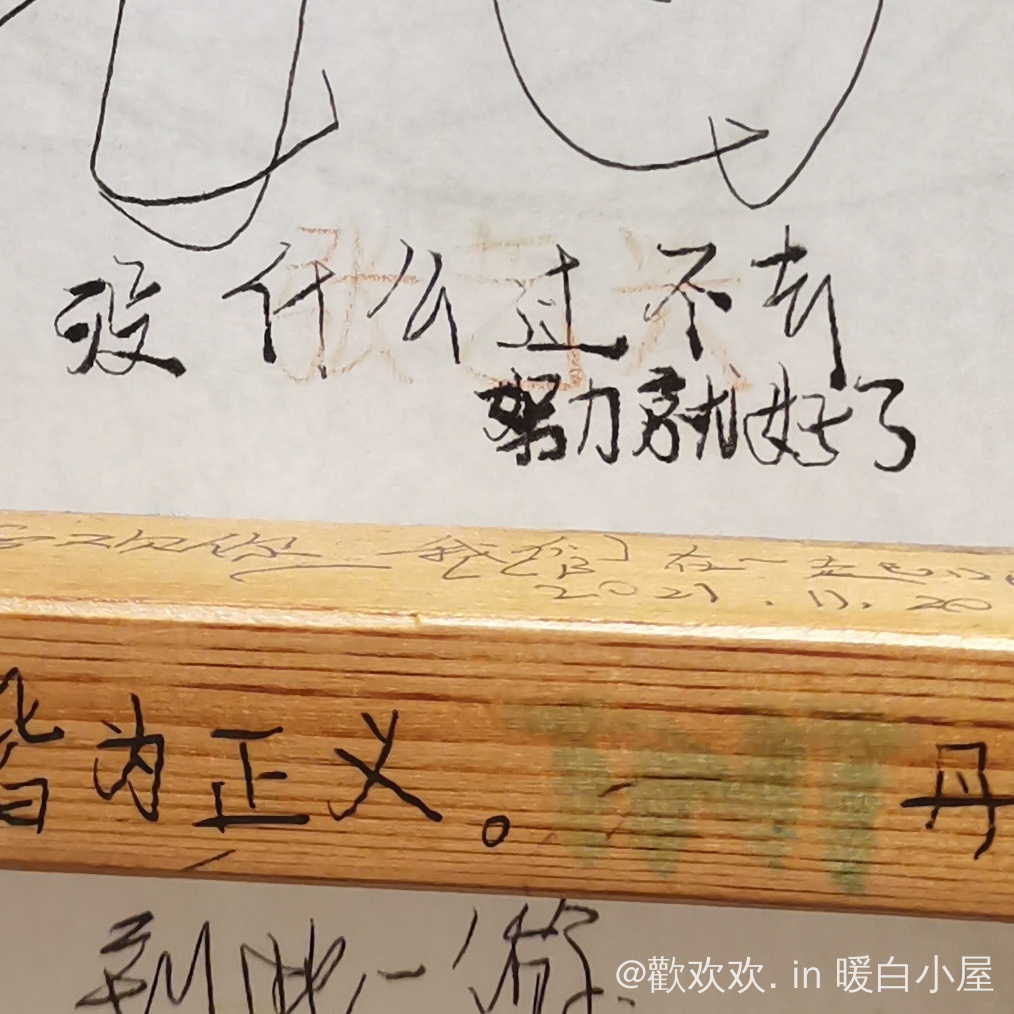 没什么过不去
努力就好了
欢你 我们在一起
2021.11.20
皆为正义。 丹
到此一游
@歡欢欢. in 暖白小屋